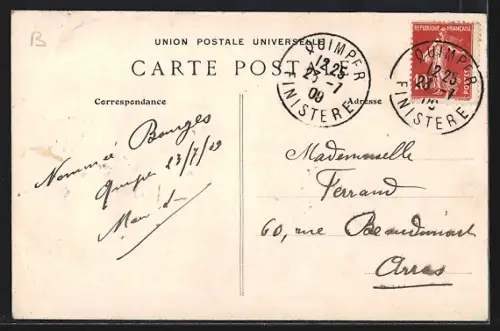 B
UNION POSTALE UNIVERSELLE
CARTE POSTALE
QUIMPER
12 25
23 -7
09
FINISTERE
REPUBLIQUE FRANÇAISE
10
POSTES
QUIMPER
12 25
-7
FINISTERE
Correspondance
Adresse
Bourges
23/7/09
Mademoiselle
Ferrand
60, rue
Arras